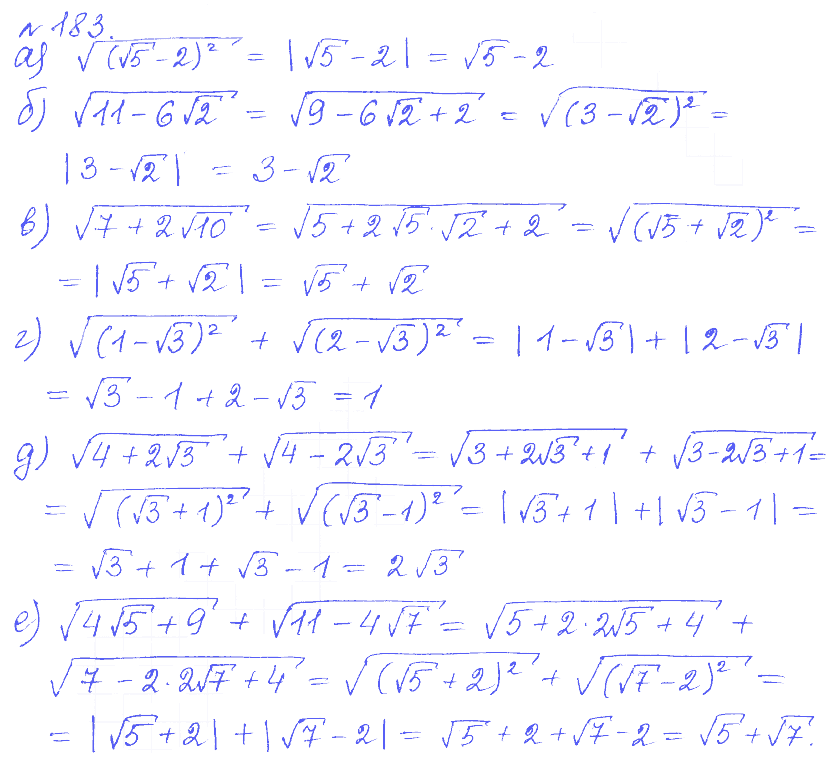 № 183.
а) √(√5 - 2)² = |√5 - 2| = √5 - 2
б) √(11 - 6√2) = √(9 - 6√2 + 2) = √(3 - √2)² =
|3 - √2| = 3 - √2
в) √(7 + 2√10) = √(5 + 2√5·√2 + 2) = √(√5 + √2)² =
= |√5 + √2| = √5 + √2
г) √(1 - √3)² + √(2 - √3)² = |1 - √3| + |2 - √3|
= √3 - 1 + 2 - √3 = 1
д) √(4 + 2√3) + √(4 - 2√3) = √(3 + 2√3 + 1) + √(3 - 2√3 + 1) =
= √(√3 + 1)² + √(√3 - 1)² = |√3 + 1| + |√3 - 1| =
= √3 + 1 + √3 - 1 = 2√3
е) √(4√5 + 9) + √(11 - 4√7) = √(5 + 2·2√5 + 4) +
√(7 - 2·2√7 + 4) = √(√5 + 2)² + √(√7 - 2)² =
= |√5 + 2| + |√7 - 2| = √5 + 2 + √7 - 2 = √5 + √7.